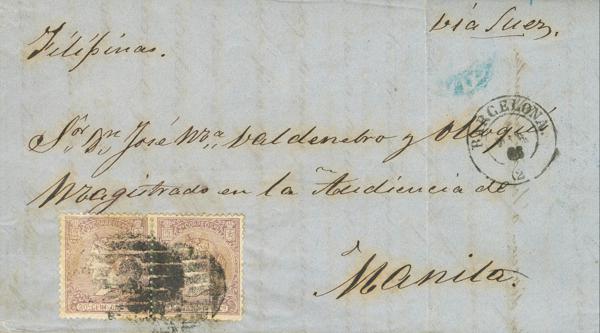 vía Suez.
Filipinas.
Sor Dn José Ma Valdenebro y Olloqui
Magistrado en la Audiencia de
Manila.
BARCELONA.
66
(2)
CORREOS